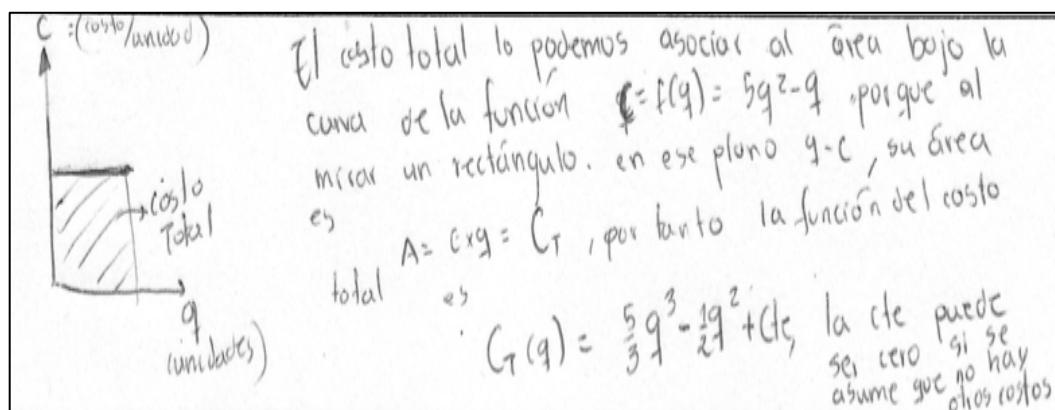 C: (costo/unidad)
costo
total
q
(unidades)
El costo total lo podemos asociar al área bajo la
curva de la función C = f(q) = 5q² - q, porque al
mirar un rectángulo. en ese plano q-c, su área
es
A = c×q = C_T, por tanto la función del costo
total es
C_T(q) = 5/3 q³ - 1/2 q² + cte, la cte puede
ser cero si se
asume que no hay
otros costos